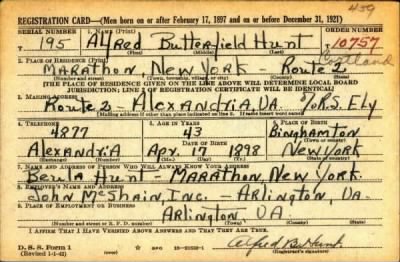 459
REGISTRATION CARD—(Men born on or after February 17, 1897 and on or before December 31, 1921)
SERIAL NUMBER 1. NAME (Print) ORDER NUMBER
195 Alfred Butterfield Hunt 10757
(First) (Middle) (Last)
2. PLACE OF RESIDENCE (Print)
MARATHON, NEW YORK - Route 2 Cortland
(Number and street) (Town, township, village, or city) (County) (State)
[THE PLACE OF RESIDENCE GIVEN ON THE LINE ABOVE WILL DETERMINE LOCAL BOARD
JURISDICTION; LINE 2 OF REGISTRATION CERTIFICATE WILL BE IDENTICAL]
3. MAILING ADDRESS
Route 2 - ALEXANDRIA, VA. % R.S. Ely
[Mailing address if other than place indicated on line 2. If same insert word same]
4. TELEPHONE 5. AGE IN YEARS 6. PLACE OF BIRTH
4877 43 Binghamton
DATE OF BIRTH (Town or county)
ALEXANDRIA Apr. 17 1898 New York
(Exchange) (Number) (Mo.) (Day) (Yr.) (State or country)
7. NAME AND ADDRESS OF PERSON WHO WILL ALWAYS KNOW YOUR ADDRESS
Beula Hunt - MARATHON, NEW YORK
8. EMPLOYER'S NAME AND ADDRESS
John McShain, Inc. - Arlington, Va.
9. PLACE OF EMPLOYMENT OR BUSINESS
Arlington, VA.
(Number and street or R. F. D. number) (Town) (County) (State)
I AFFIRM THAT I HAVE VERIFIED ABOVE ANSWERS AND THAT THEY ARE TRUE.
D. S. S. Form 1
(Revised 1-1-42) GPO Alfred B. Hunt
(Registrant's signature)